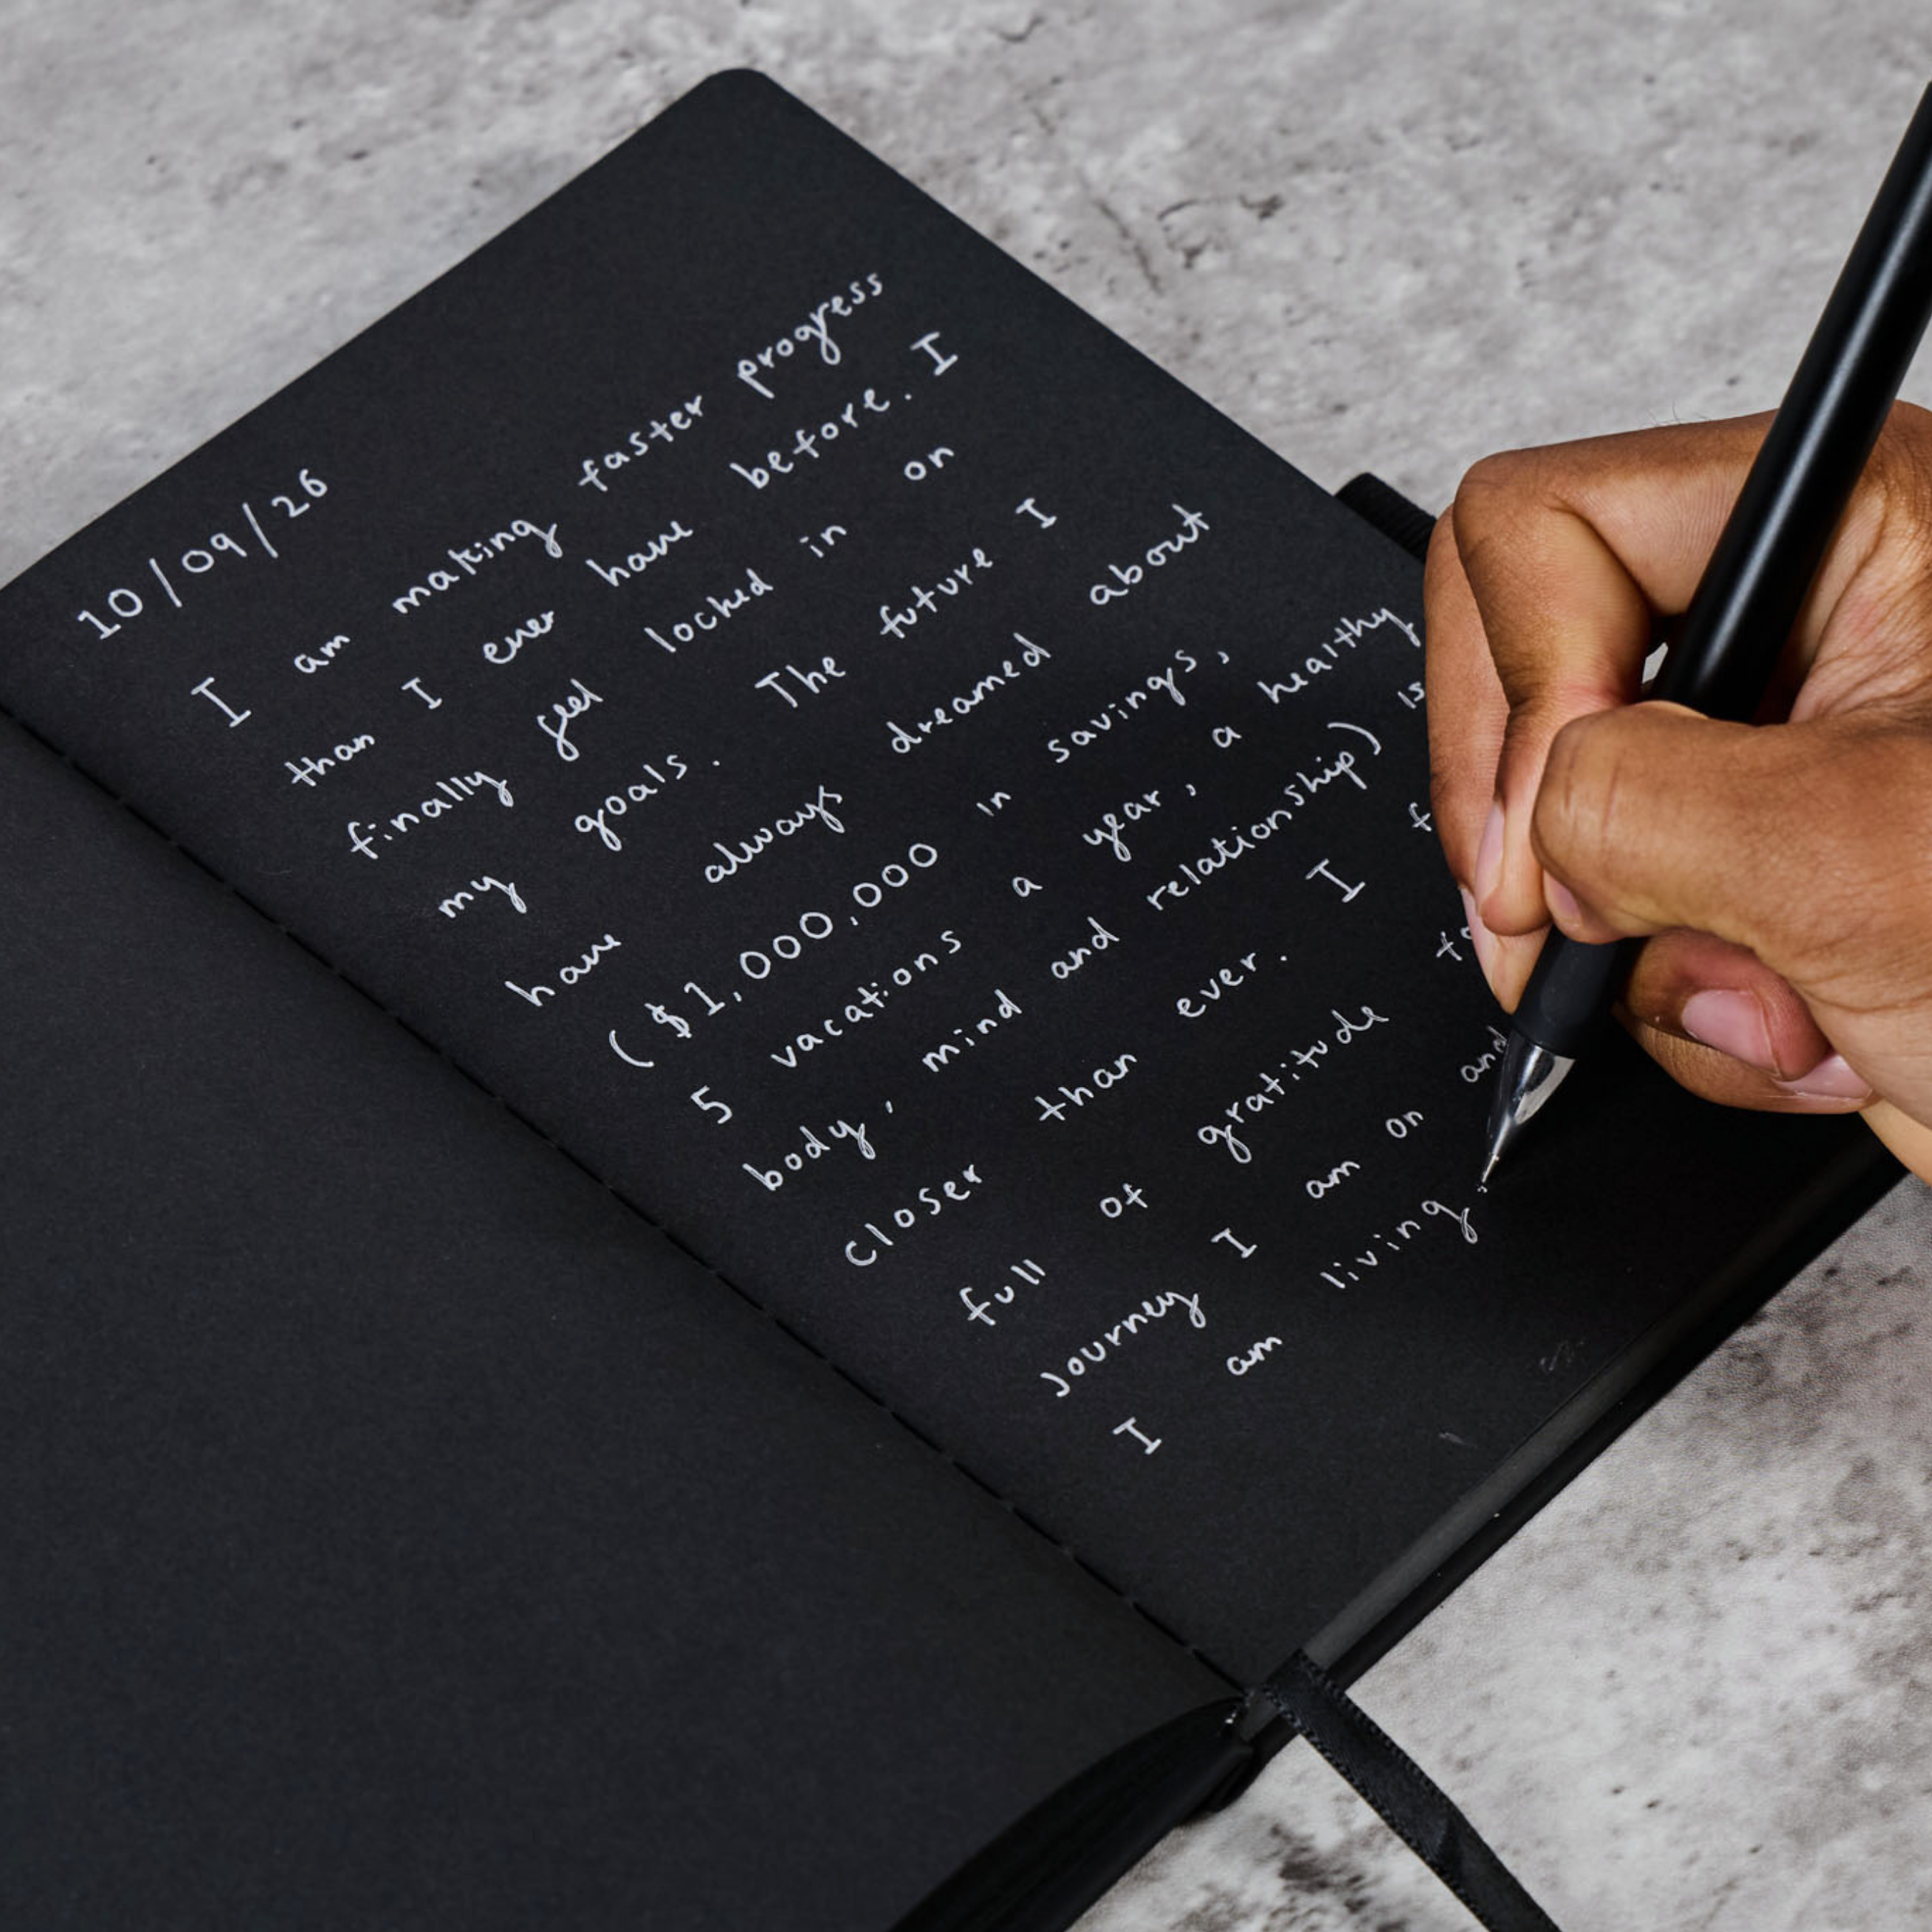 10/09/26
I am making faster progress
than I ever have before. I
finally feel locked in on
my goals. The future I
have always dreamed about
($1,000,000 in savings,
5 vacations a year, a healthy
body, mind and relationship) is
closer than ever. I
full of gratitude
journey I am on and
I am living.